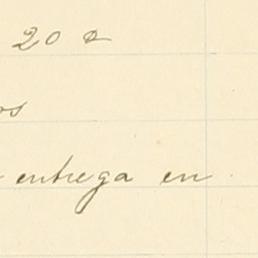 20 a
os
entrega en